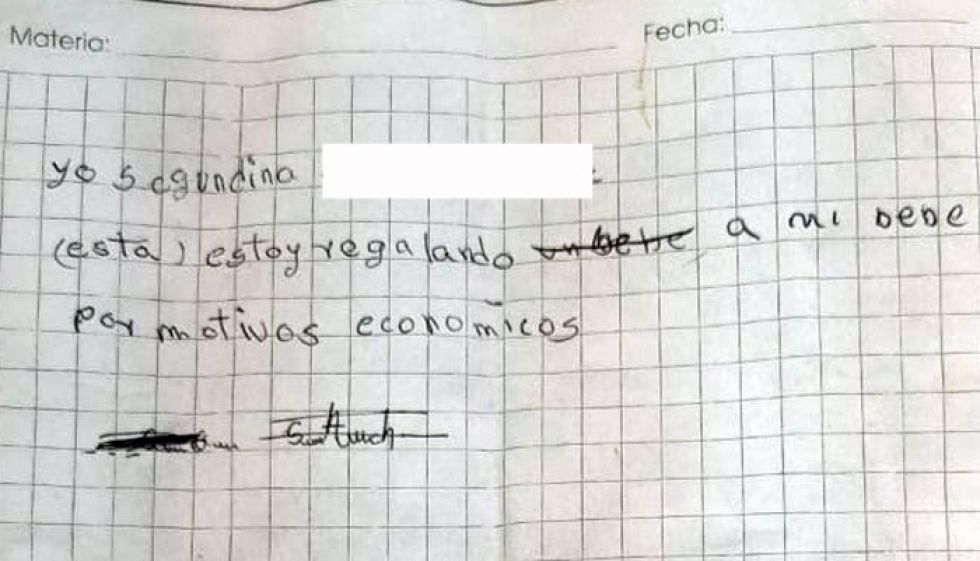 Materia: Fecha:
yo Segundina
(esta) estoy regalando un bebe a mi bebe
por motivos economicos